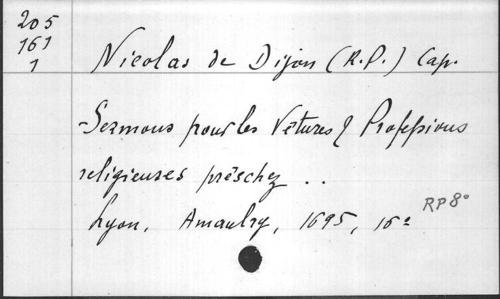 205
161
1
Nicolas de Dijon (R.P.) Cap.
Sermons pour les Vêtures & Professions
religieuses préschez ..
Lyon, Amaulry, 1695, 16º
RP 8º